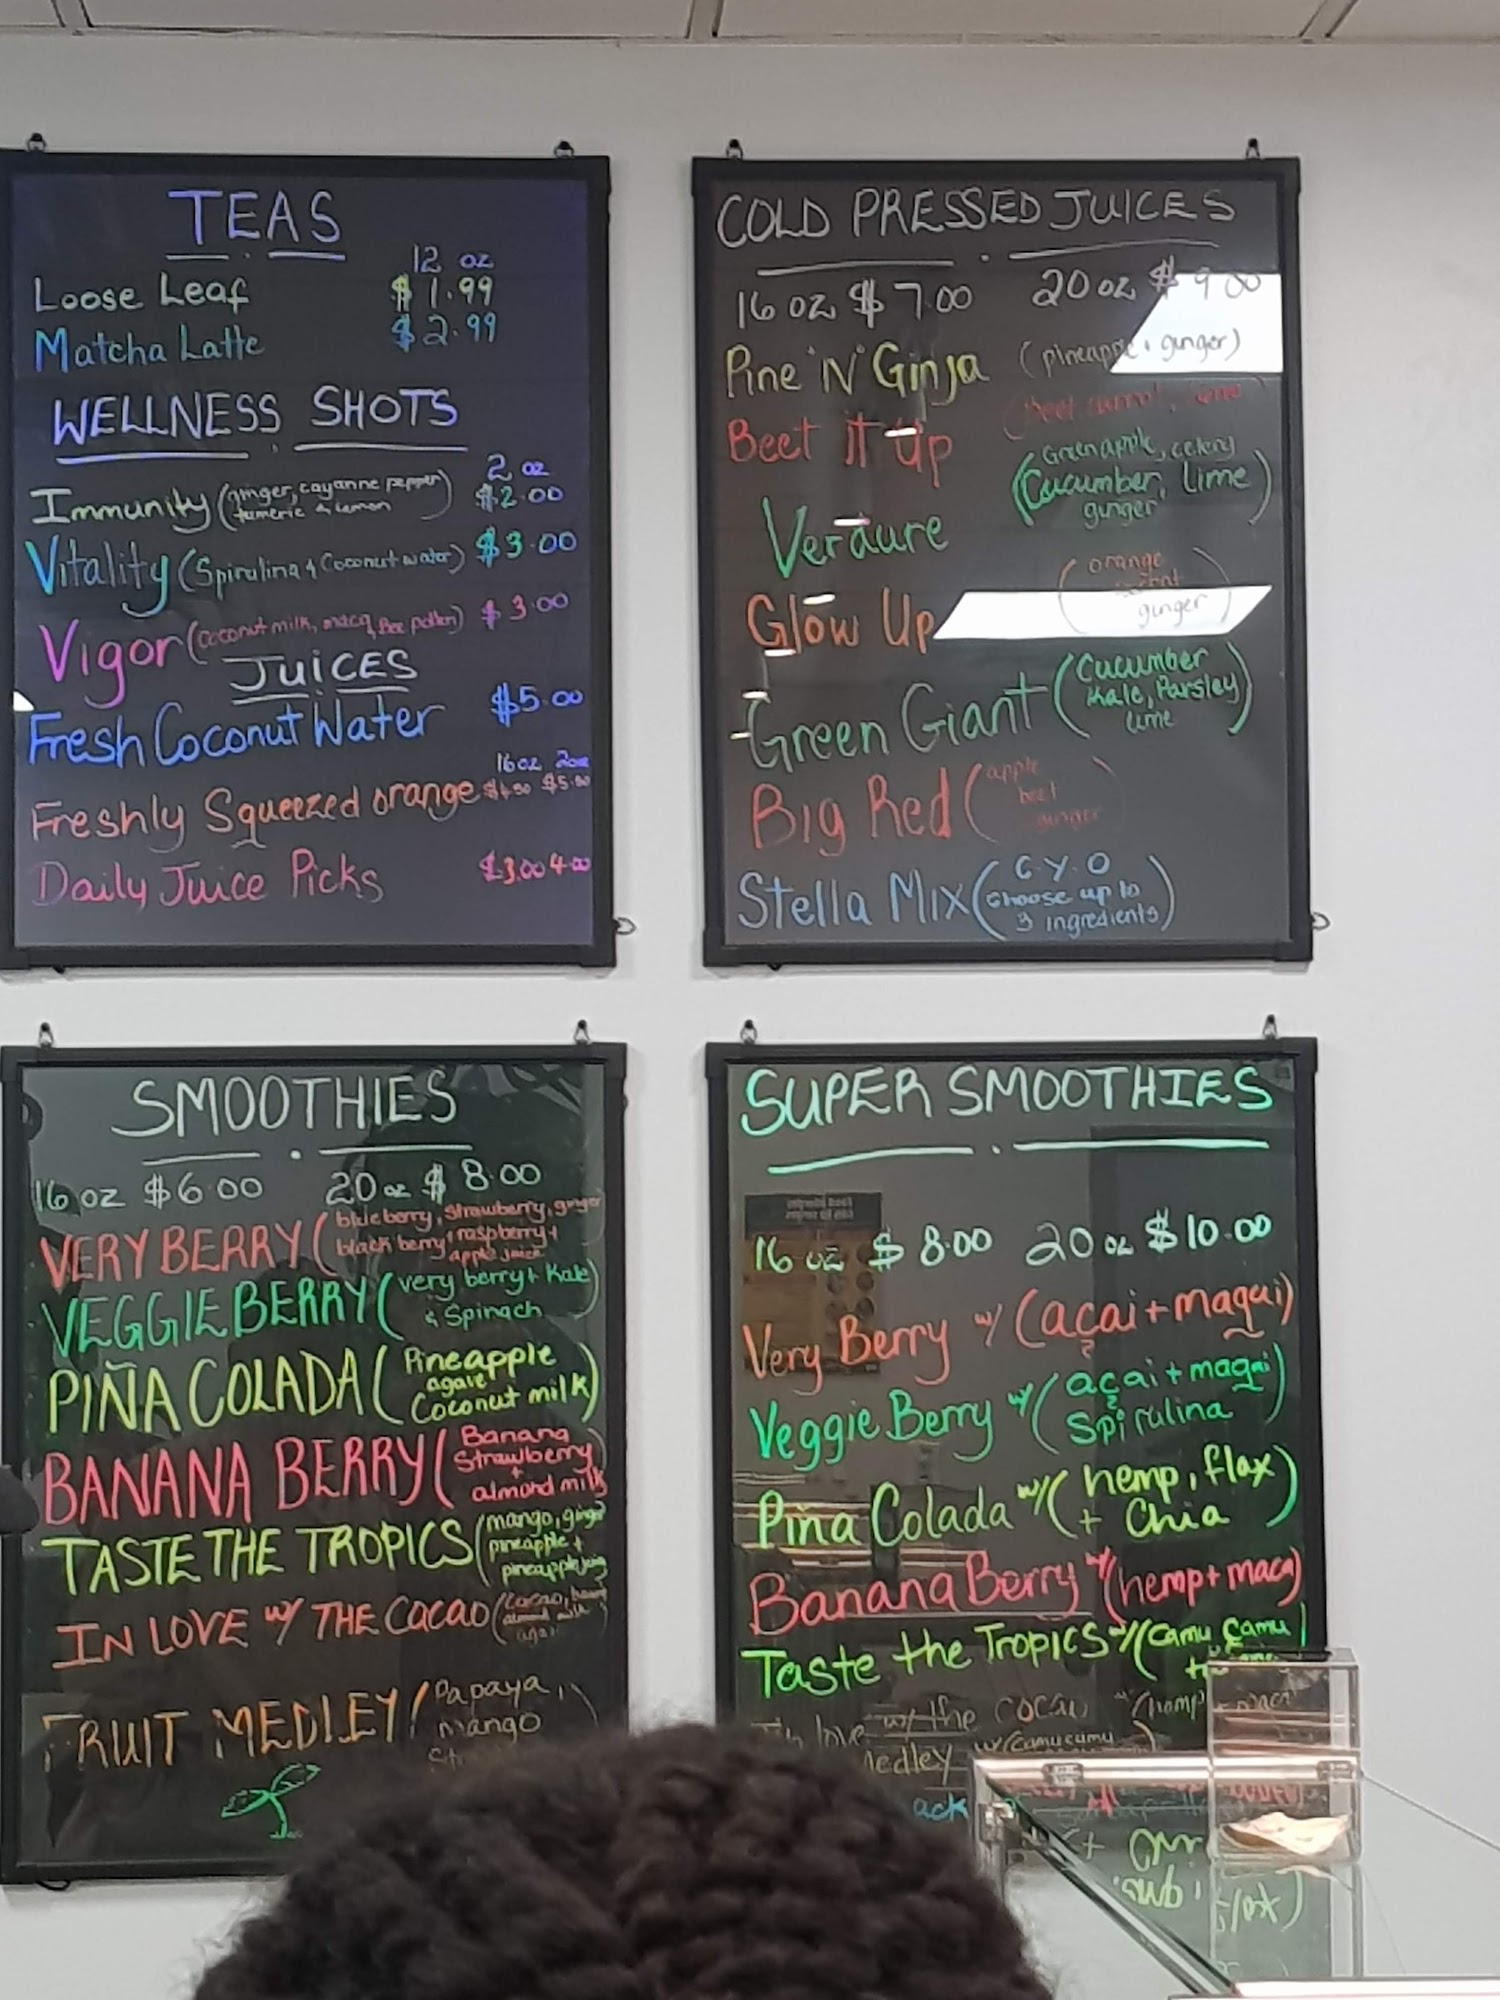 TEAS
12 oz
Loose Leaf $1.99
Matcha Latte $2.99
WELLNESS SHOTS
2 oz
Immunity (ginger, cayanne pepper $2.00
tumeric & lemon)
Vitality (Spirulina & Coconut water) $3.00
Vigor (coconut milk, maca, Bee pollen) $3.00
JUICES
Fresh Coconut Water $5.00
16oz 20oz
Freshly Squeezed orange $5.00
Daily Juice Picks $3.00 4.00
COLD PRESSED JUICES
16 oz $7.00 20 oz $9.00
Pine 'N' Ginja (pineapple + ginger)
Beet it Up (Beet carrot, lime)
Verdure (Green apple, celery
Cucumber, lime
ginger)
Glow Up (orange
carrot
ginger)
Green Giant (Cucumber
Kale, Parsley
lime)
Big Red (apple
beet
ginger)
Stella Mix (C.Y.O
Choose up to
3 ingredients)
SMOOTHIES
16 oz $6.00 20 oz $8.00
VERY BERRY (blueberry, strawberry, ginger
black berry, raspberry +
apple juice
VEGGIE BERRY (very berry + Kale
& Spinach)
PIÑA COLADA (Pineapple
agave
Coconut milk)
BANANA BERRY (Banana
Strawberry
+
almond milk)
TASTE THE TROPICS (mango, ginger
pineapple +
pineapple juice
IN LOVE w/ THE CACAO (cacao,
almond milk
FRUIT MEDLEY (Papaya,
mango
SUPER SMOOTHIES
16 oz $8.00 20 oz $10.00
Very Berry w/ (açai + maqui)
Veggie Berry w/ (açai + maqui
Spirulina)
Piña Colada w/ (hemp, flax
+ Chia)
Banana Berry w/ (hemp + maca)
Taste the Tropics w/ (Camu Camu
In love w/ the cocau w/ (hemp maca
Medley w/ (camu camu)